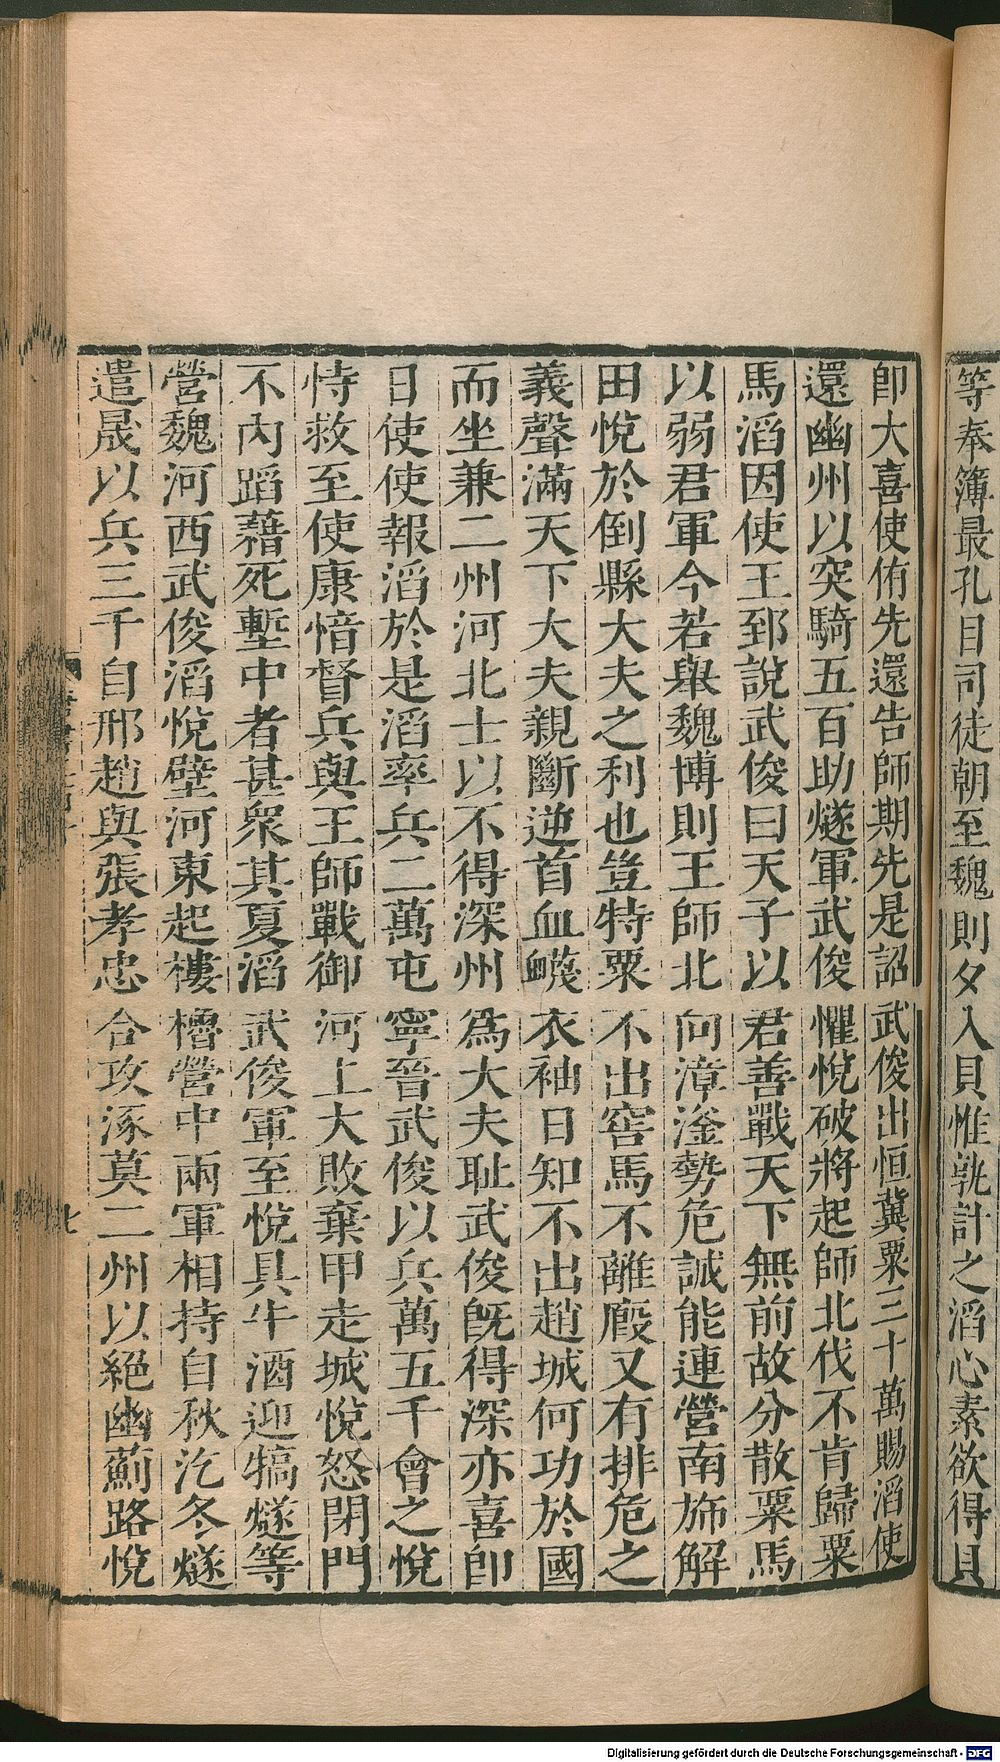 等奉簿最孔目司徒朝至魏則夕入貝惟孰計之滔心素欲得貝
卽大喜使侑先還告師期先是詔武俊出恒冀粟三十萬賜滔使
還幽州以突騎五百助燧軍武俊懼悅破將起師北伐不肯歸粟
馬滔因使王郅說武俊曰天子以君善戰天下無前故分散粟馬
以弱君軍今若舉魏博則王師北向漳滏勢危誠能連營南旆解
田悅於倒縣大夫之利也豈特粟不出窖馬不離廄又有排危之
義聲滿天下大夫親斷逆首血衊衣袖日知不出趙城何功於國
而坐兼二州河北士以不得深州爲大夫耻武俊旣得深亦喜卽
日使使報滔於是滔率兵二萬屯寧晉武俊以兵萬五千會之悅
恃救至使康愔督兵與王師戰御河上大敗棄甲走城悅怒閉門
不內蹈藉死塹中者甚衆其夏滔武俊軍至悅具牛酒迎犒燧等
營魏河西武俊滔悅壁河東起樓櫓營中兩軍相持自秋汔冬燧
遣晟以兵三千自邢趙與張孝忠合攻涿莫二州以絕幽薊路悅
Digitalisierung gefördert durch die Deutsche Forschungsgemeinschaft - DFG